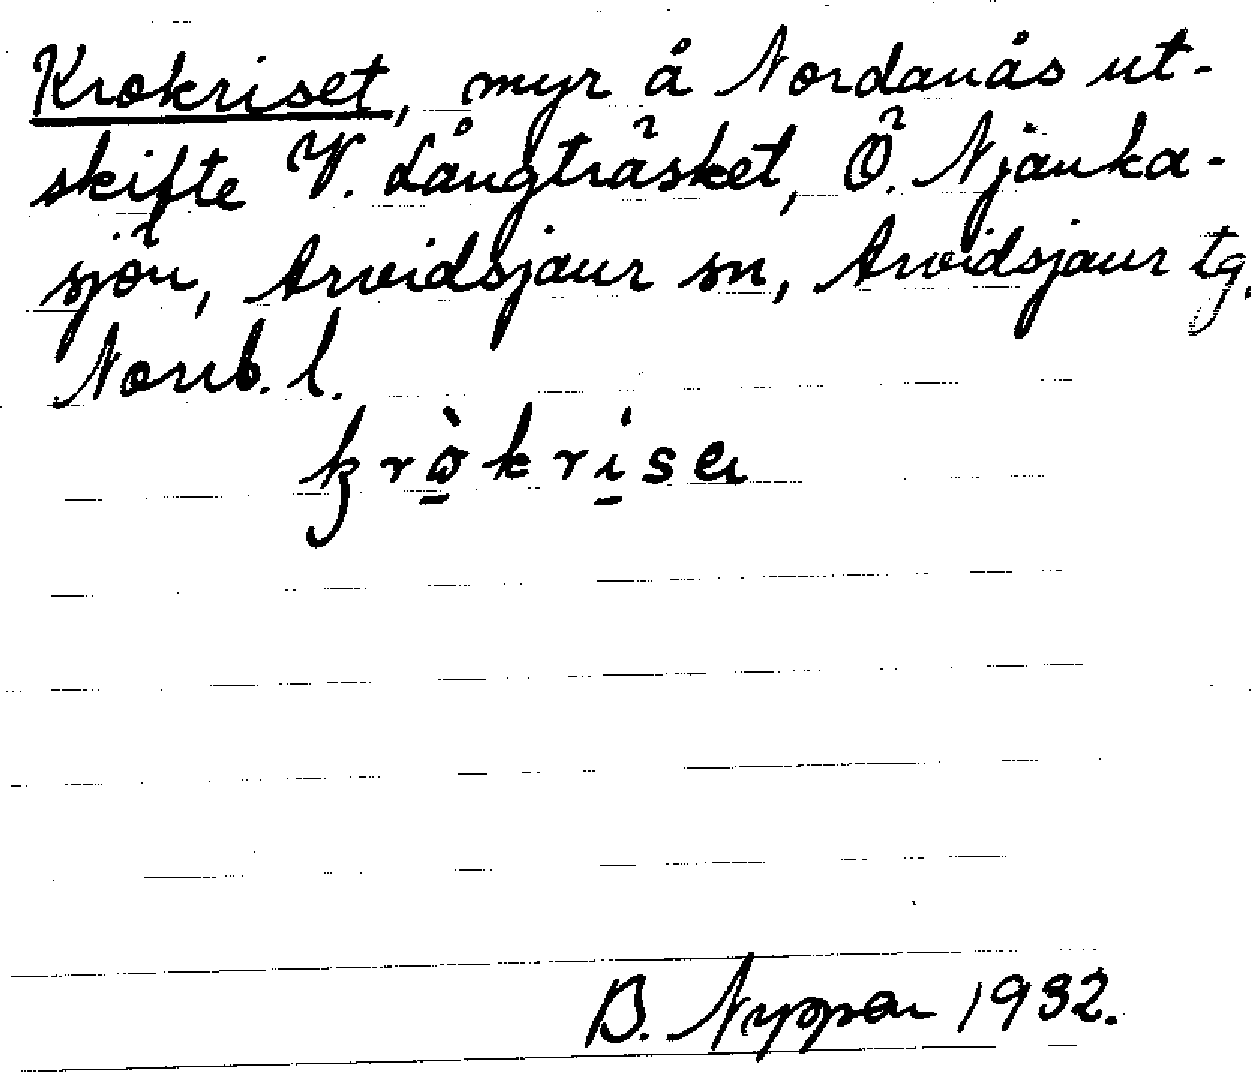 Krokriset, myr å Nordanås ut-
skifte V. Långträsket, Ö. Njauka-
sjön, Arvidsjaur sn, Arvidsjaur tg.
Norrb. l.
B. Nyppen 1932.